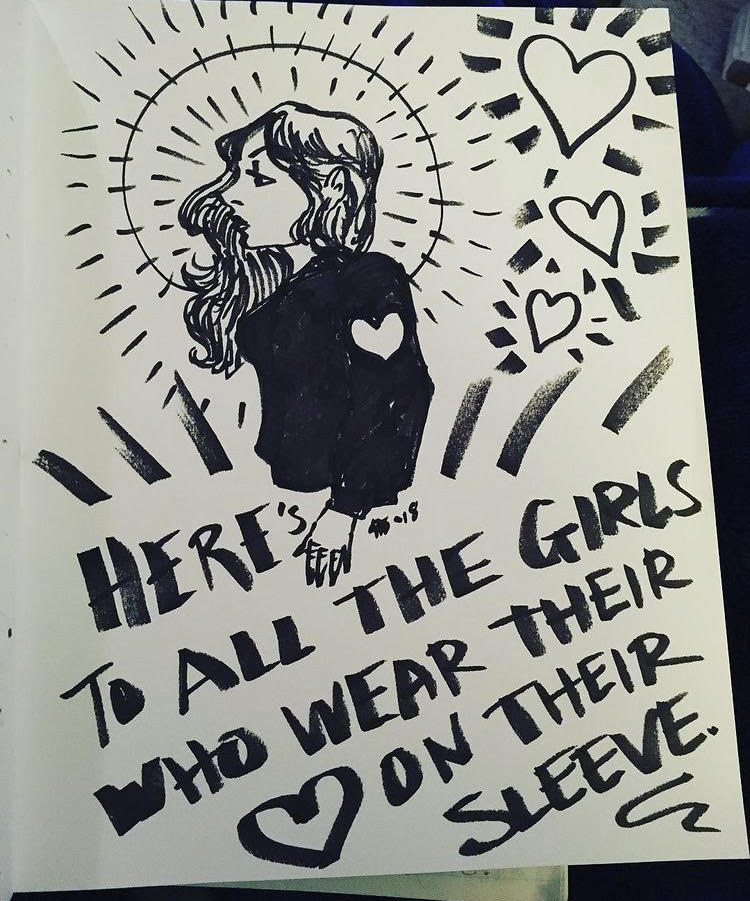 HERE'S
TO ALL THE GIRLS
WHO WEAR THEIR
ON THEIR
SLEEVE.